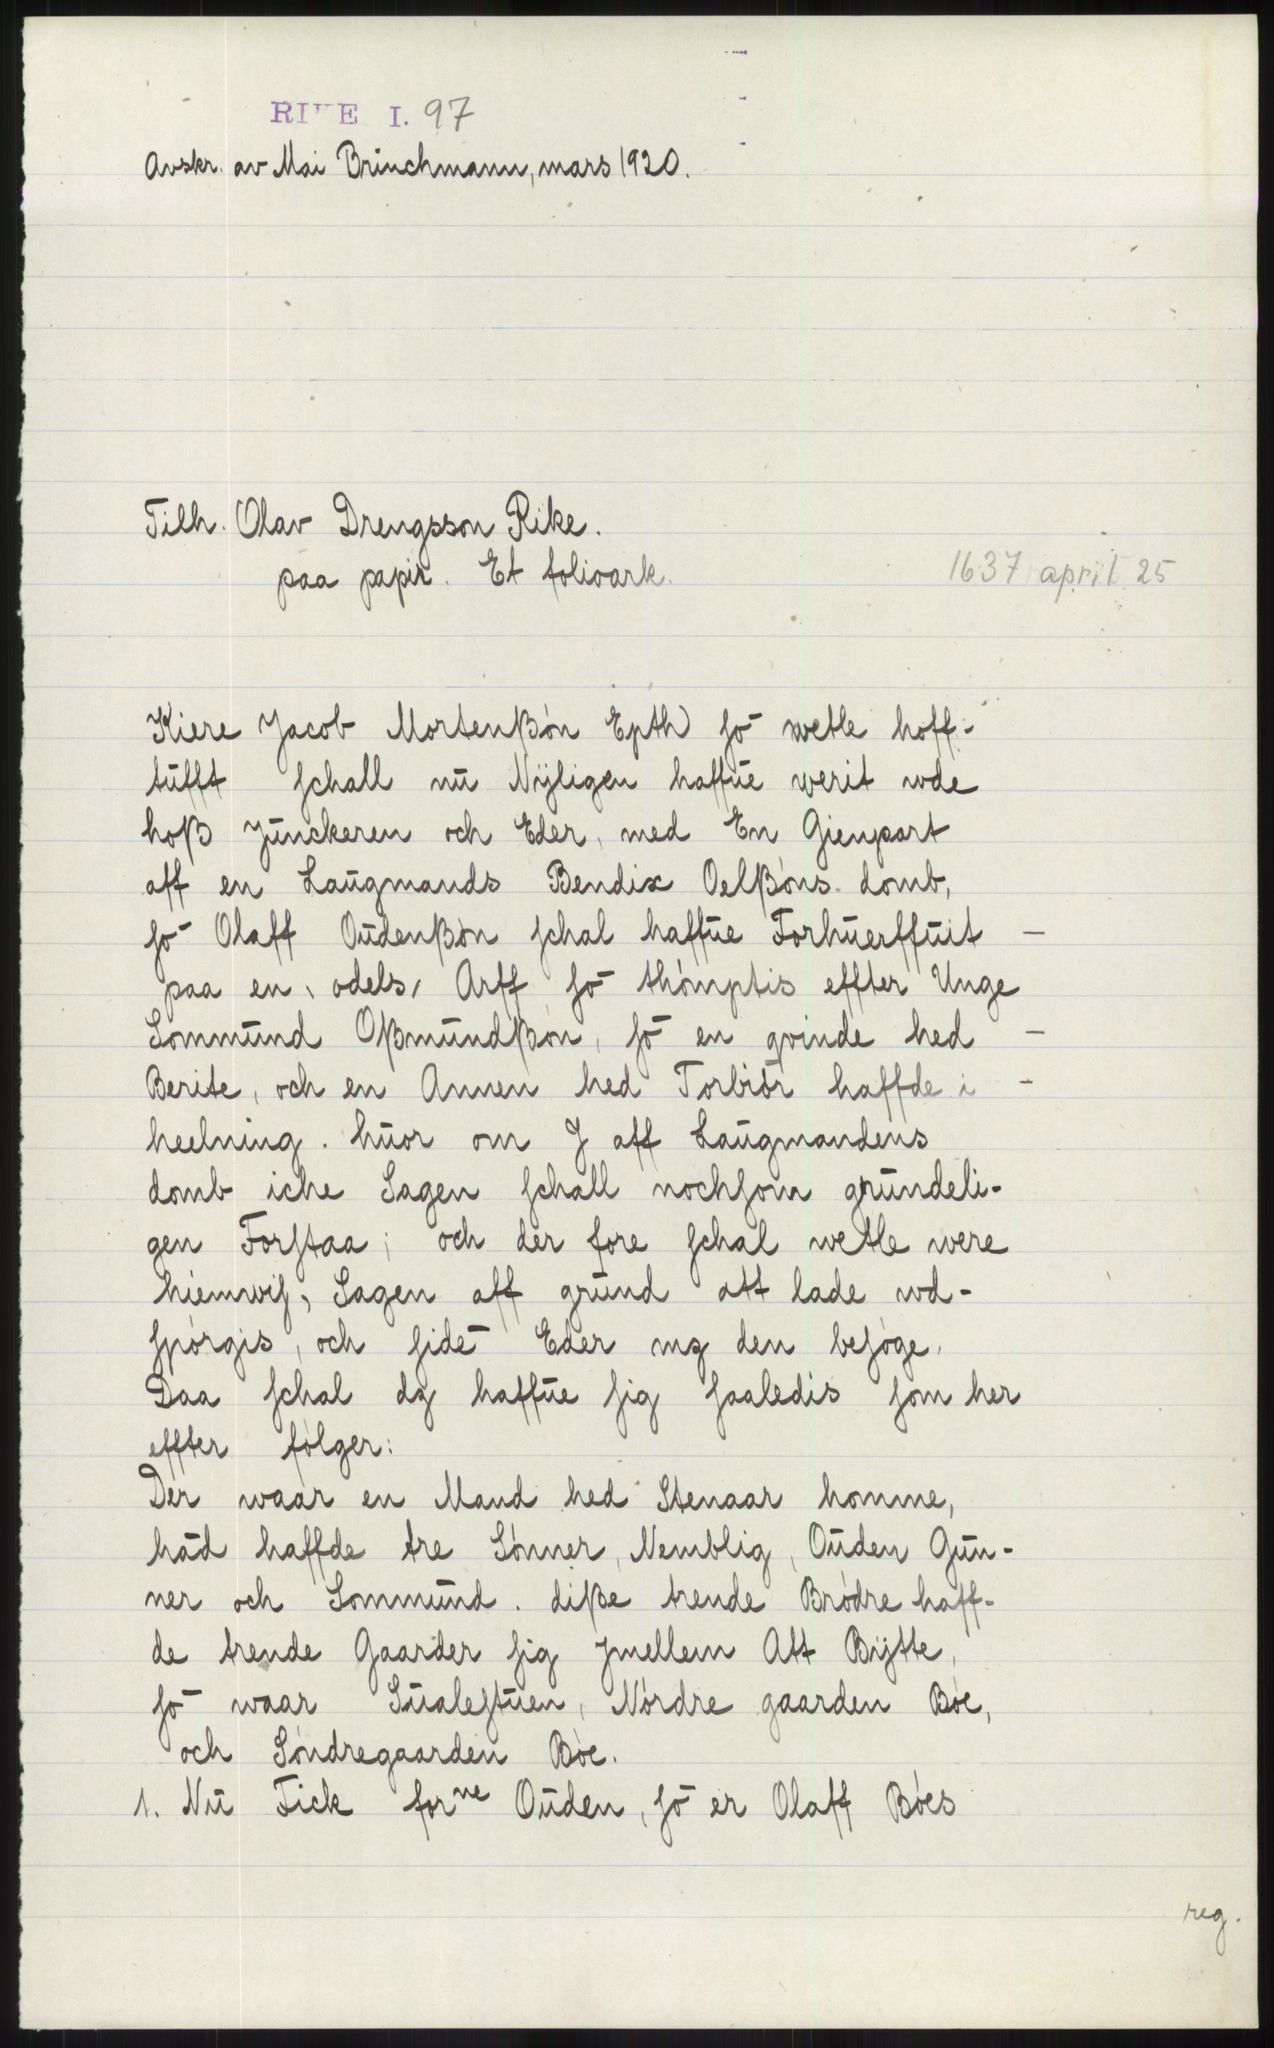 RIKE I. 97
Avskr. av Mai Brinchmann, mars 1920.
Tilh. Olav Drengsson Rike.
paa papir. Et folioark.
1637 april 25
Kiere Jacob Mortenßøn Epth) so̅ wetle hoff-
tufft schall nu Nyligen haffue werit wde
hoß Junckeren och Eder, med En Gienpart
aff en Laugmands Bendix Oelßøns domb,
so̅ Olaff Oudenßøn schal haffue Forhuerffuit —
paa en, odels, Arff so̅ thømptis effter Unge
Sommund Oßmundßøn, so̅ en qvinde hed —
Berite, och en Annen hed Torbiør haffde i -
heelning. huor om J aff Laugmandens
domb iche Sagen schall nochsom grundeli-
gen Forstaa; och der fore schal wetle were
hiemvis, Sagen aff grund att lade wd-
spørgis, och side̅ Eder mz den besøge.
Daa schal dz haffue sig saaledis som her
effter følger:
Der waar en Mand hed Stenaar homme,
ha̅d haffde tre Sønner, Nemblig, Ouden Gun-
ner och Sommund. diße trende Brødre haff-
de trende Gaarder sig Jmellem Att Bytte,
so̅ waar Sualestuen, Nørdre gaarden Bøe,
och Søndregaarden Bøe.
1. Nu Fick forne Ouden, so̅ er Olaff Bøes
reg.